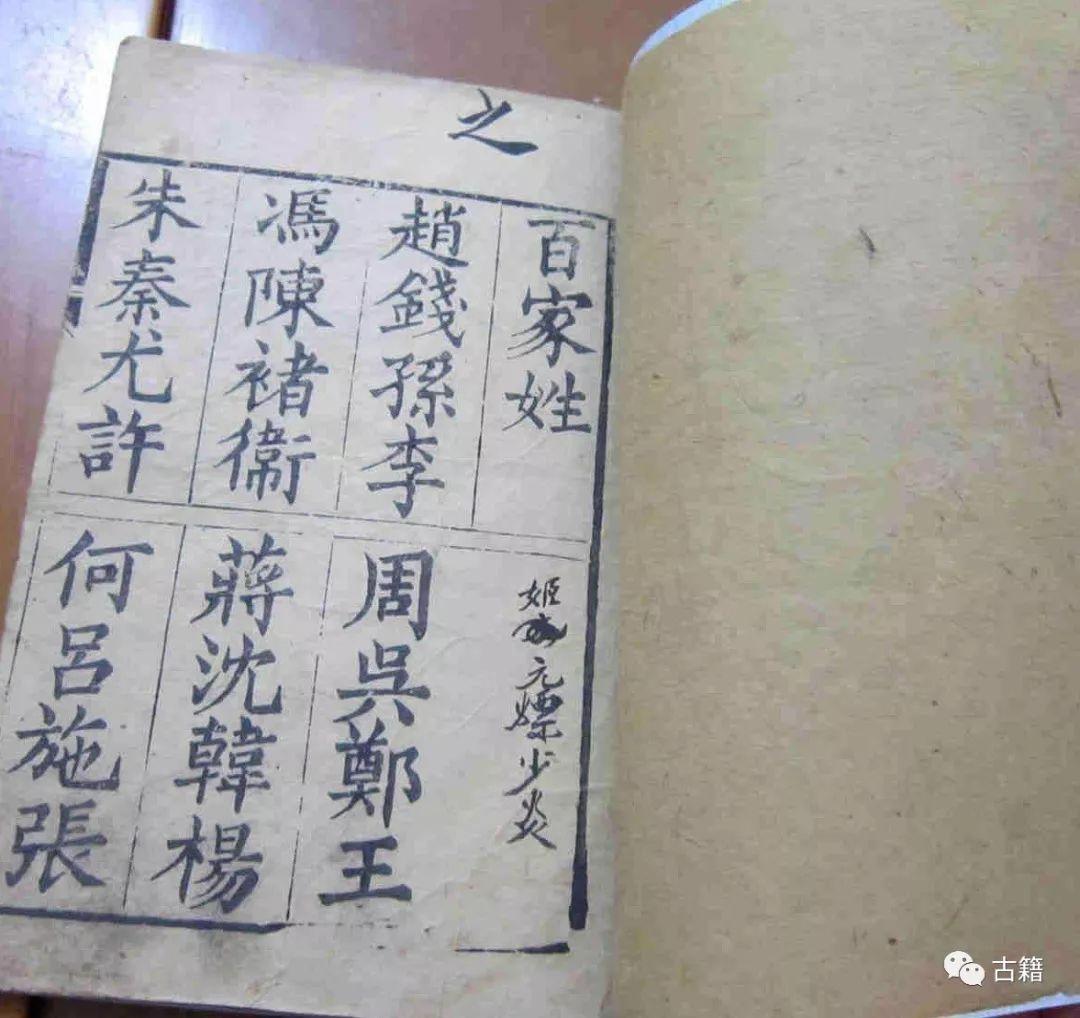 之
百家姓
趙錢孫李
馮陳褚衞
朱秦尤許
姬 元嫖少炎
周吳鄭王
蔣沈韓楊
何呂施張
古籍